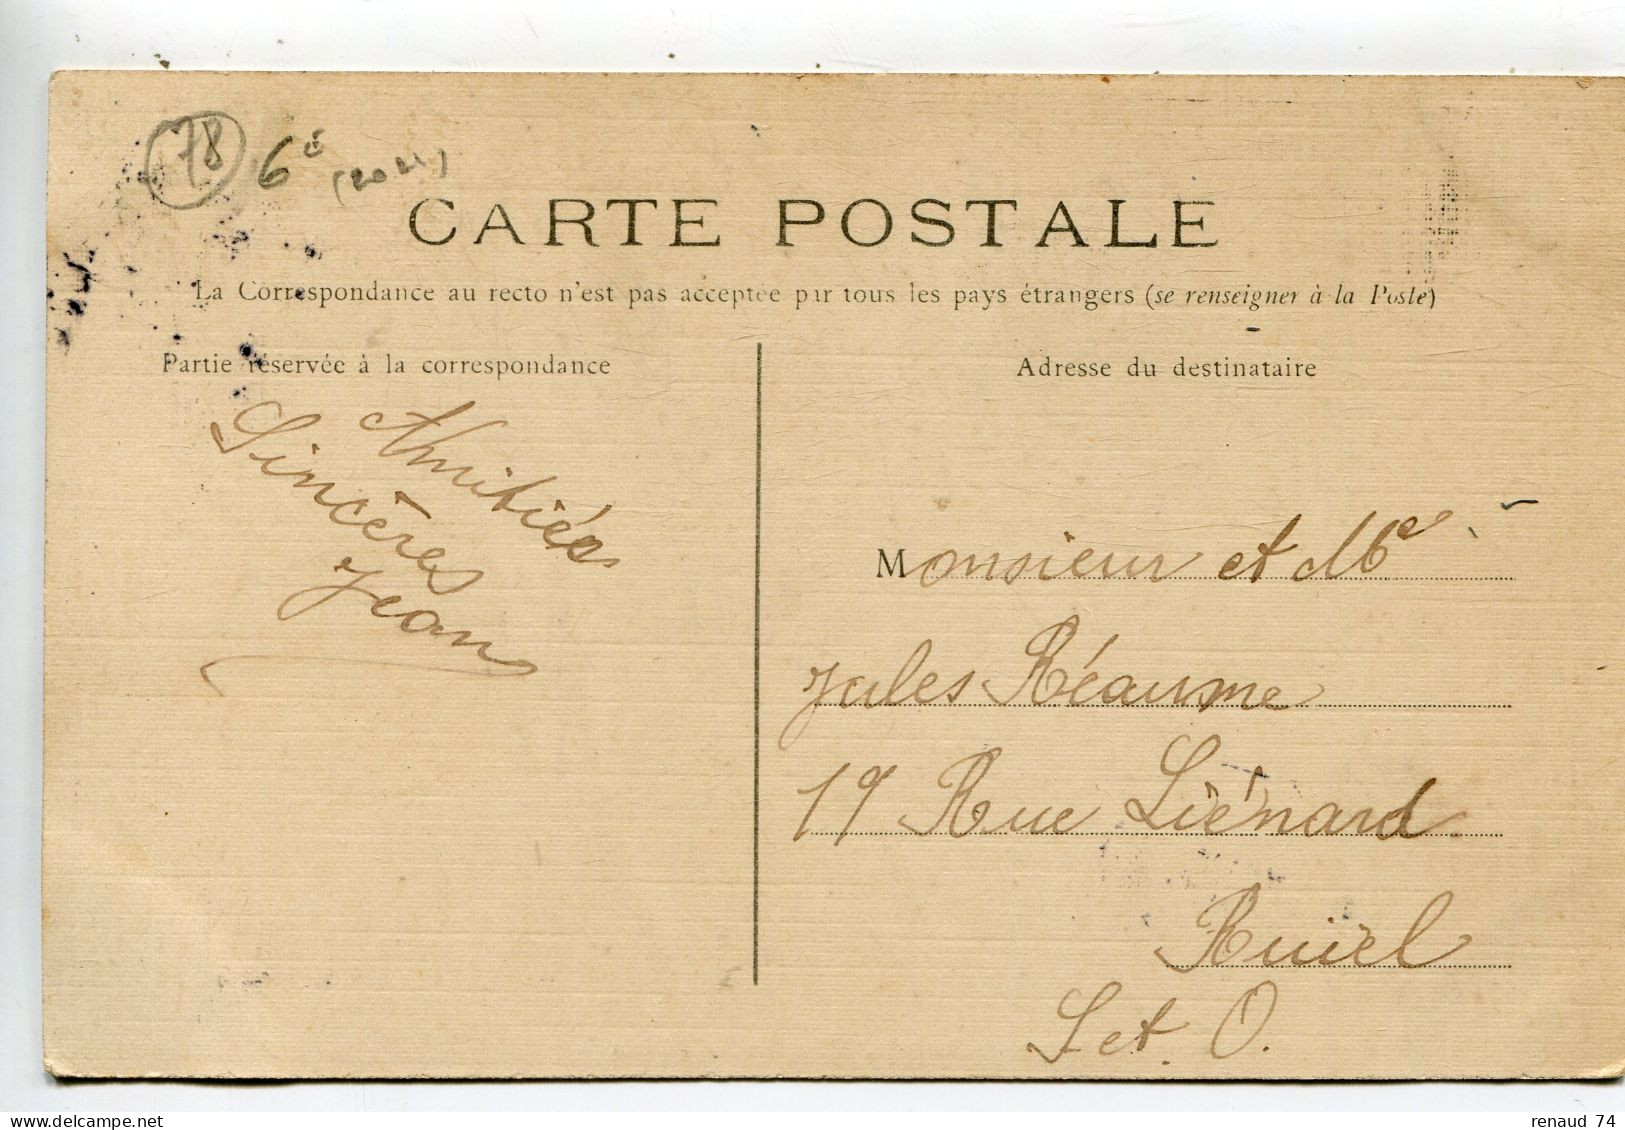 78 6€ (2021)
CARTE POSTALE
La Correspondance au recto n'est pas acceptée par tous les pays étrangers (se renseigner à la Poste)
Partie réservée à la correspondance
Amitiés
Sincères
Jean
Adresse du destinataire
Monsieur et Me
Jules Réaume
19 Rue Liénard
Rueil
S et. O.
renaud 74